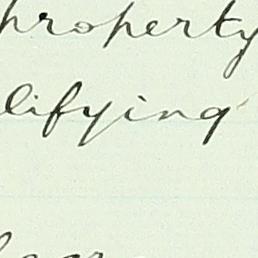 property
lifying